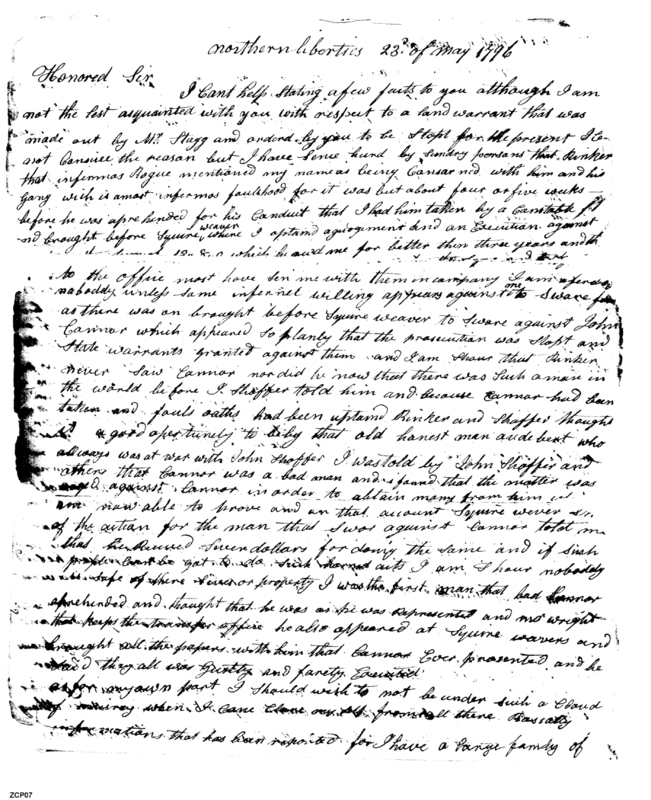 northern liberties 23d of may 1796
Honored Sir
I Cant help Stating a few facts to you although I am
not the lest acquainted with you with respect to a land warrant that was
made out by Mr. Stagg and orderd by you to be Stopt for the present I Ca-
not Consive the reason but I have Sence hurd by sundery poersans that Rinker
that infermos Rogue mentioned my name as being Cansarned with him and his
Gang wich is amost infermos faulshood for it was but about four or five weeks
before he was aprehended for his Conduit that I had him taken by a Canstable
and brought before Squire weaver where I optand a gudgement and an Execution against
which he awd me for better then three years and th
to the office most have Sen me with them in company I am afear
nobaddy unless Some infernel willing appears against me to Sware
as there was an brought before Squire weaver to Sware against John
Cannor which appeared So planly that the prosicution was Stopt and
State warrants granted against them and I am Shour that Rinker
never Saw Cannor nor did he now that there was Such a man in
the world before J. Shoffer told him and becouse Cannor had been
taken and fouls oaths had been uptand Rinker and Shaffer thought
it a good opertunely to by that old honest man audebert who
allways was at war with John Shoffer I was told by John Shoffer and
others that Cannor was a bad man and i found that the matter was
against Cannor in order to abtain many from him
am now able to prove and on that account Squire wever
of the action for the man that Swor against Cannor told me
that he Receved Seven dollars for doing the Same and if Such
people Can be gat to do Such horred acts I am Shour nobaddy
was Safe of there Lives or property I was the first man that had Cannor
aprehended and thought that he was as he was represented and mr wright
that keeps the transfer office he also appeared at Squire wavers and
brought all the papers with him that Cannor Ever prasented and he
Said they all was Guoelty and farely Executed
as for my own part I Should wish to not be under Such a Claud
when I Cane Clare my Self from all there Rascally
informations that has been reported for I have a large family of
ZCP07